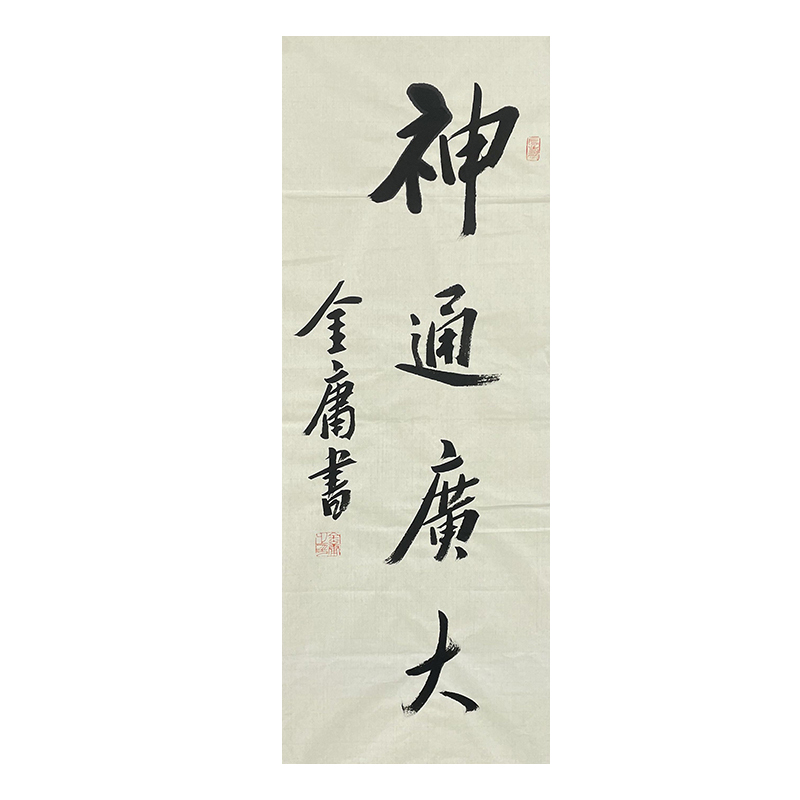 神通廣大
金庸書